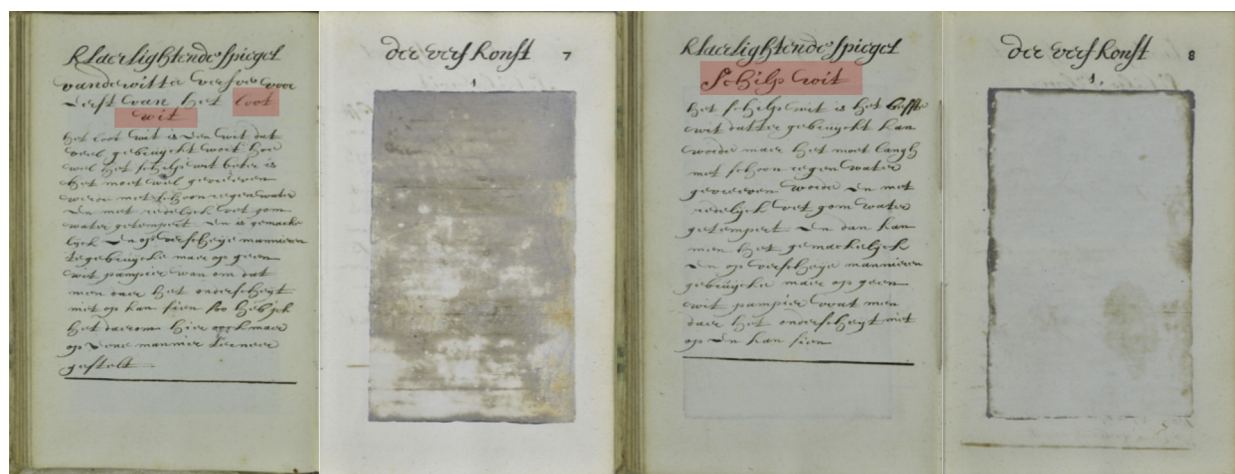 klaerlightende spiegel
vande witte verfwe voor
Eerst van het loot
wit
het loot wit is Een wit dat
veel gebruyckt wort hoe
wel het schilp wit beter is
het moet wel gevreeven
werde met schoon regen water
En met redelyck vet gom
water getempert En is gemacke
lyck En op verscheye mannieren
te gebruycke maer op geen
wit pampier want om dat
men daer het onderscheyt
niet op kan sien soo heb ick
het daerom hier oock maer
op Eene mannier ter neer
gestelt
der verf konst 7
1
klaerlightende spiegel
Schilp wit
het schilp wit is het beste
wit datter gebruyckt kan
worde maer het moet langh
met schoon regen water
gevreeven worde En met
redelyck vet gom water
getempert En dan kan
men het gemackelyck
En op verscheye mannieren
gebruycke maer op geen
wit pampier want men
daer het onderscheyt niet
op En kan sien
der verf konst 8
1